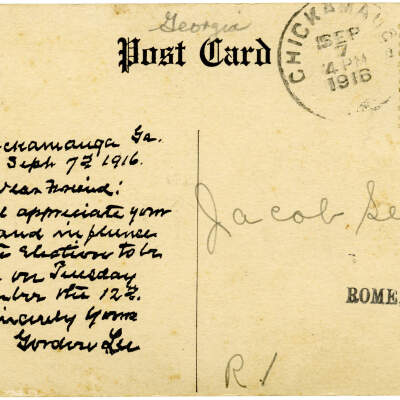 Georgia
Post Card
CHICKAMAUGA
SEP
7
4 PM
1916
ckamauga Ga.
Sept 7th 1916.
Dear Friend:
appreciate your
and influence
Election to be
on Tuesday
mber the 12th.
incerely Yours
Gordon Lee
Jacob Ge
ROME,
R 1